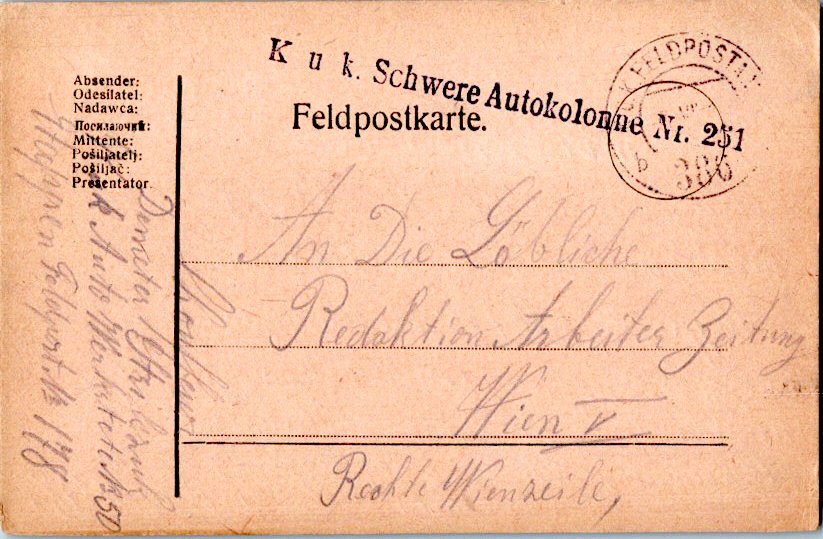 K u k. Schwere Autokolonne Nr. 251
K.u.K. FELDPOSTAMT
b 386
Feldpostkarte.
Absender:
Odesílatel:
Nadawca:
Посилаючий:
Mittente:
Pošiljatelj:
Pošiljač:
Presentator.
An Die Löbliche
Redaktion Arbeiter Zeitung
Wien V
Rechte Wienzeile,
Auto No 50
Etappen Feldpost. No 178